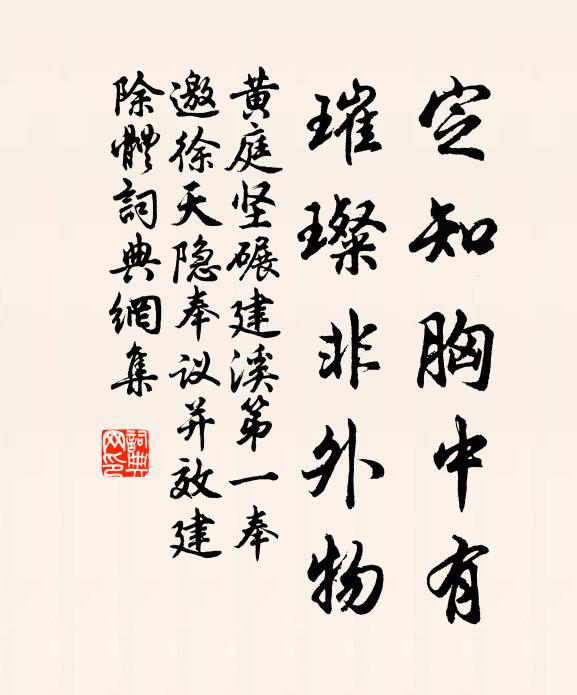 定知胸中有
璀璨非外物
黄庭坚碾建溪第一奉
邀徐天隐奉议并效建
除體詞典網集
詞典
网印